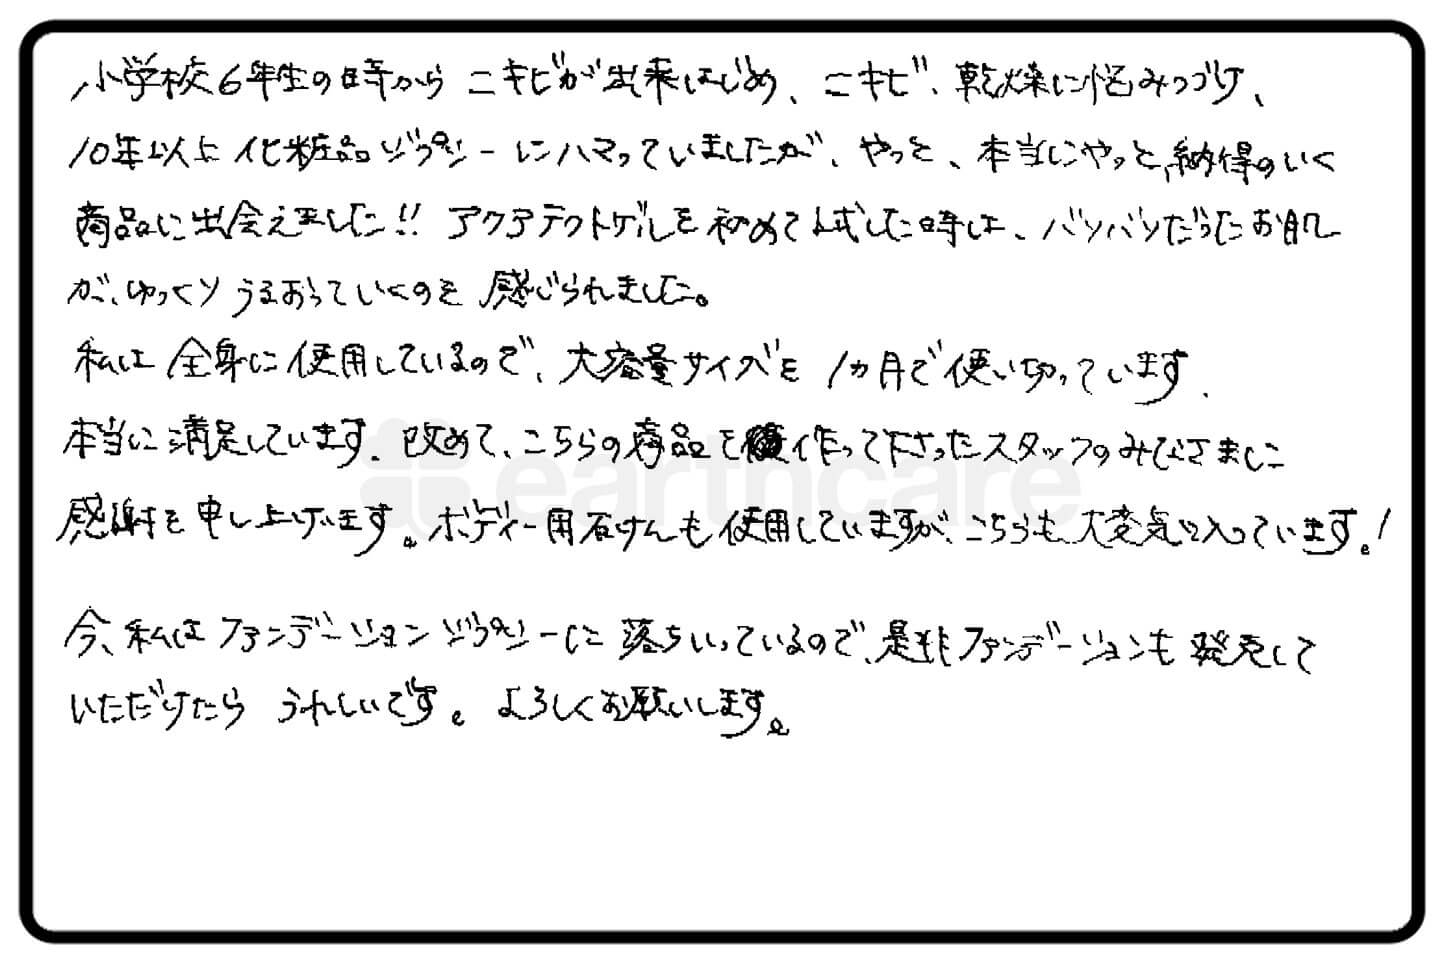 小学校6年生の時から ニキビが出来はじめ、ニキビ、乾燥に悩みつづけ、
10年以上 化粧品ジプシーにハマっていましたが、やっと、本当にやっと、納得のいく
商品に出会えました!! アクアテクトゲルを初めて試した時は、バリバリだったお肌
が、ゆっくりうるおっていくのを 感じられました。
私は 全身に使用しているので、大容量サイズを 1ヵ月で使い切っています.
本当に満足しています. 改めて、こちらの商品を作って下さったスタッフのみなさまに
感謝を申し上げます。ボディー用石けんも使用していますが、こちらも大変気に入っています。!
今、私はファンデーションジプシーに 落ちいっているので、是非ファンデーションも発売して
いただけたら うれしいです。よろしくお願いします。
earthcare